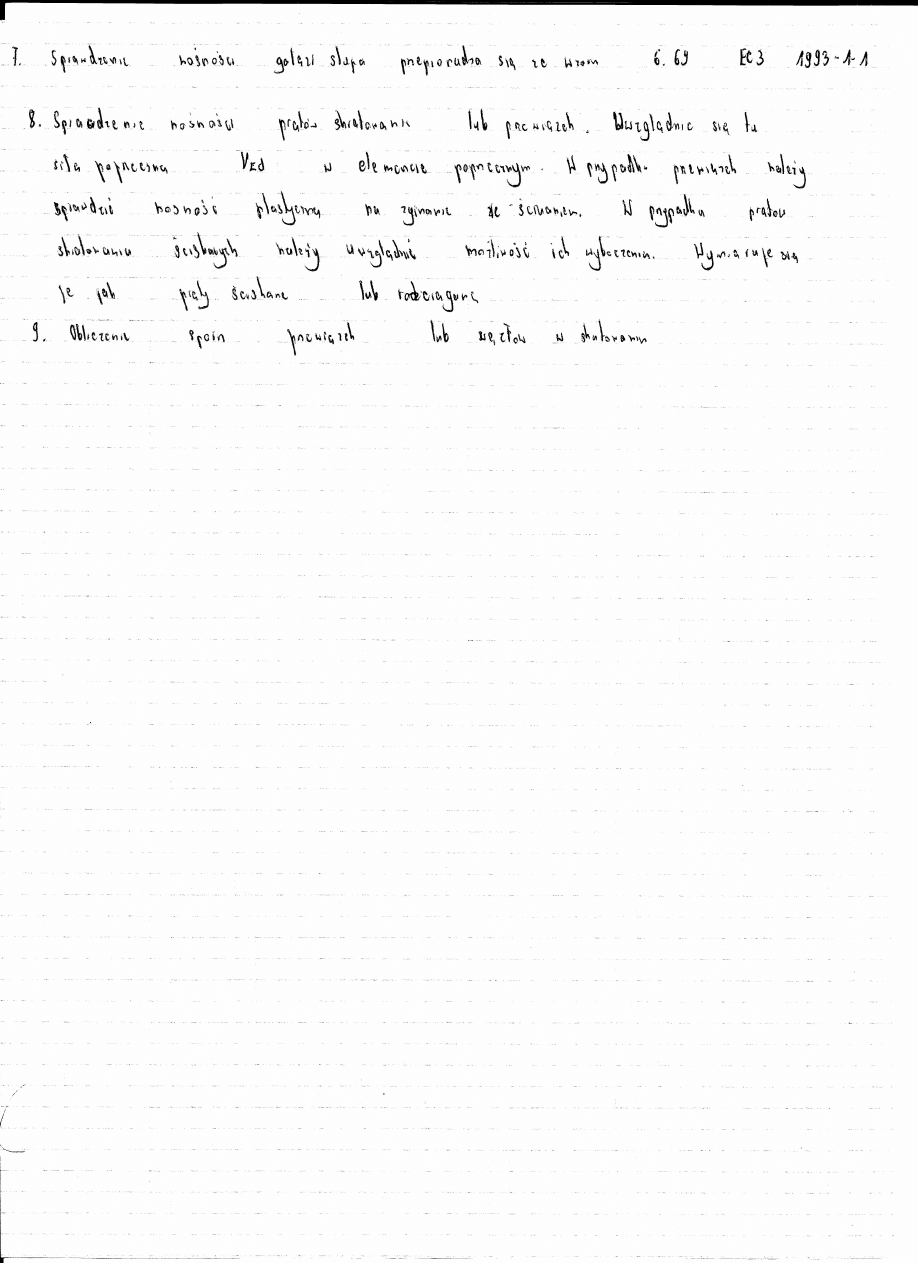 7. Sprawdzenie nośności gałęzi słupa przeprowadza się ze wzoru 6.69 EC3 1993-1-1
8. Sprawdzenie nośności prętów skratowania lub przewiązek. Uwzględnia się tu
siła poprzeczna VEd w elemencie poprzecznym. W przypadku przewiązek należy
sprawdzić nośność plastyczną na zginanie ze ścinaniem. W przypadku prętów
skratowania ściskanych należy uwzględnić możliwość ich wyboczenia. Wymiaruje się
je jak pręty ściskane lub rozciągane
9. Obliczenie spoin przewiązek lub węzłów w skratowaniu